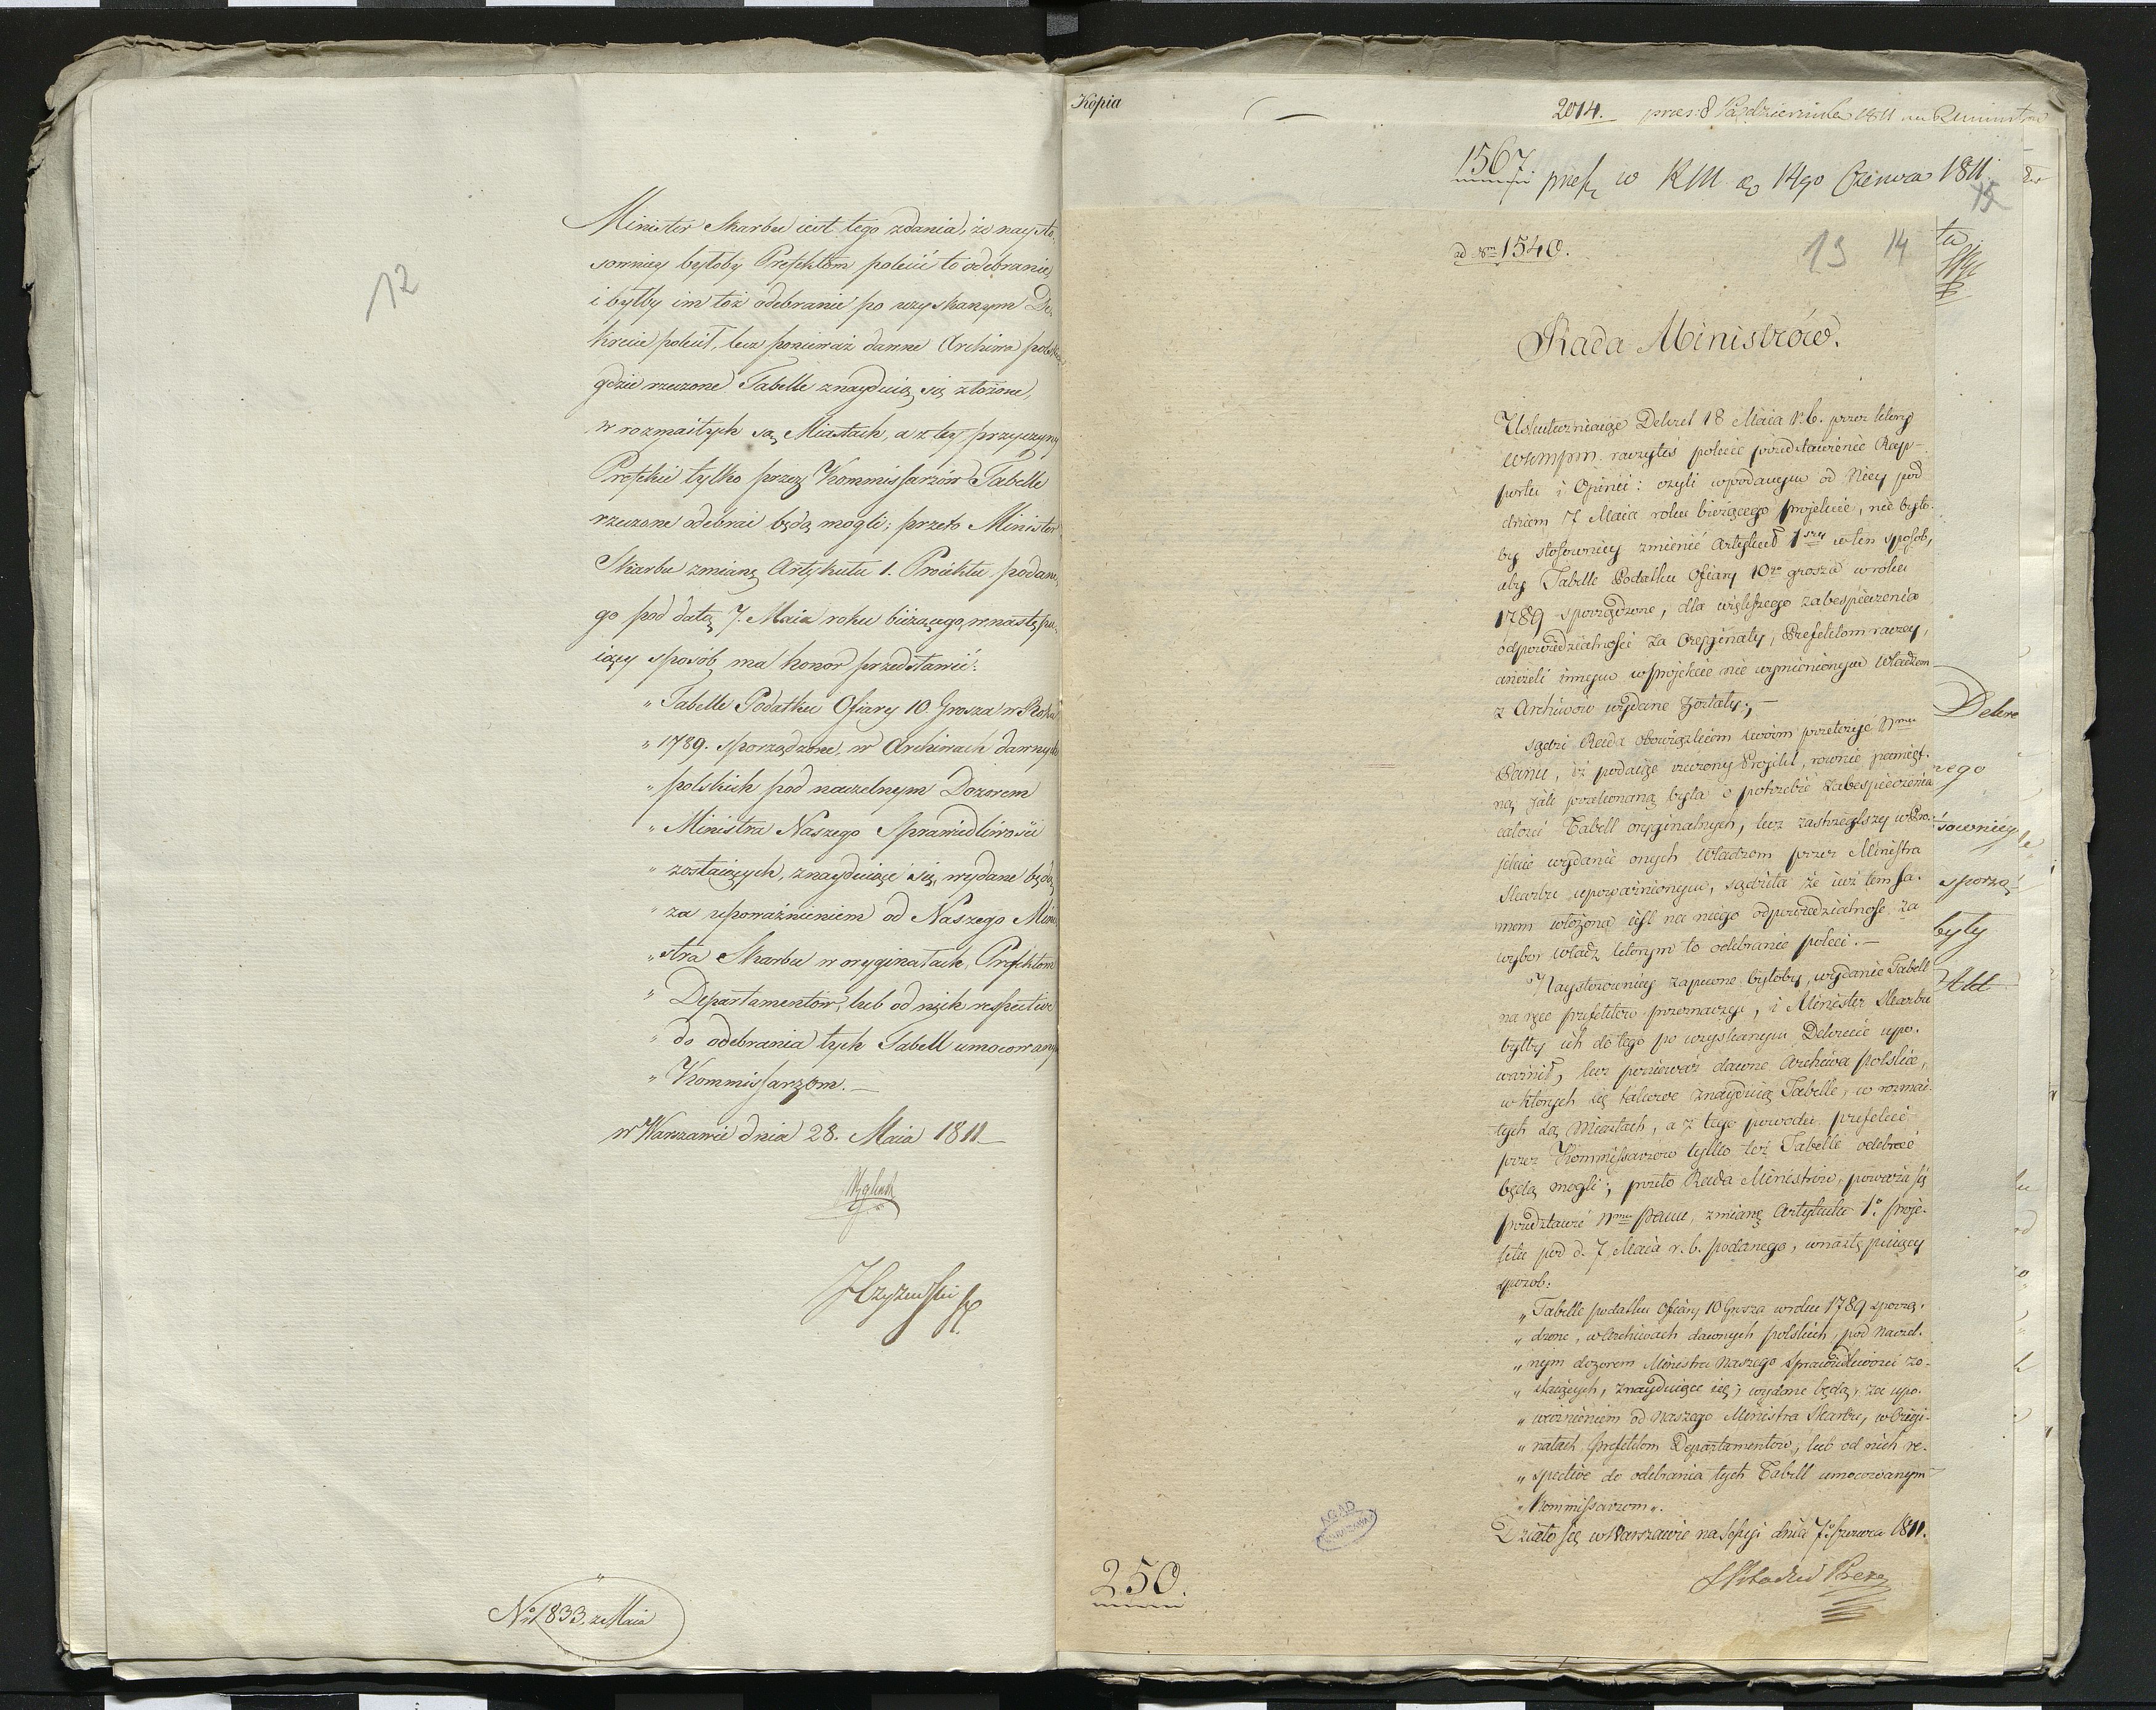 12
Minister Skarbu iest tego zdania, że naysto-
sowniey byłoby Prefektom polecić to odebranie,
i byłby im toż odebranie po uzyskanym De-
krecie polecił, lecz ponieważ dawne Archiwa polskie
gdzie rzeczone Tabelle znayduią się złożone,
w rozmaitych są Miastach, a z tey przyczyny
Prefekci tylko przez Kommissarzów Tabelle
rzeczone odebrać będą mogli; przeto Minister
Skarbu zmianę Artykułu 1. Proiektu podane-
go pod datą 7. Maia roku bieżącego, w następu-
iący sposób ma honor przedstawić:
" Tabelle Podatku Ofiary 10. Grosza w Roku
" 1789. sporządzone, w Archiwach dawnych
" polskich pod naczelnym Dozorem
" Ministra Naszego Sprawiedliwości
" zostaiących, znayduiące się, wydane będą
" za upoważnieniem od Naszego Mini-
" stra Skarbu w oryginałach, Prefektom
" Departamentów, lub od nich respective
" do odebrania tych Tabell umocowanym
" Kommissarzom.
w Warszawie dnia 28. Maia 1811
No 1833. z Maia
Kopia
2014. praes: 8 Października 1811
1567 w RM 14go Czerwca 1811.
15
ad Nrum 1540.
13 14
Rada Ministrów.
Uskuteczniaiąc Dekret 18 Maia r. b. przez który
WKMPM. raczyłeś polecić przedstawienie Rap-
portu i Opinii: czyli w podanym od Niey pod
dniem 7 Maia roku bieżącego projekcie, nie było-
by stosowniey zmienić Artykuł 1szy w ten sposób,
aby Tabelle Podatku Ofiary 10go grosza w roku
1789 sporządzone, dla większego zabespieczenia
odpowiedzialności za Oryginały, Prefektom raczey,
aniżeli innym w projekcie nie wymienionym Władzom
z Archiwów wydane zostały;—
Sądzi Rada obowiązkiem swoim przełożyć Nmu
Panu, iż podaiąc rzeczony Projekt, równie pamięt-
ną jak przekonaną była o potrzebie zabespieczenia
całości Tabell oryginalnych, lecz zastrzegłszy w Pro-
jekcie wydanie onych Władzom przez Ministra
Skarbu upoważnionym, sądziła że iuż tem sa-
mem włożona iest na niego odpowiedzialność za
wybór Władz którym to odebranie poleci.—
Naystosowniey zapewne byłoby, wydanie Tabell
na ręce prefektów przeznaczyć, i Minister Skarbu
byłby ich do tego po uzyskanym Dekrecie upo-
ważnił, lecz ponieważ dawne Archiwa polskie,
w których się takowe znayduią Tabelle, w rozmai-
tych są Miastach, a z tego powodu prefekci
przez Kommissarzów tylko też Tabelle odebrać
będą mogli; przeto Rada Ministrów, poważa się
przedstawić Nmu Panu, zmianę Artykułu 1o proje-
ktu pod d. 7 Maia r. b. podanego, w następuiący
sposób:
" Tabelle podatku Ofiary 10 Grosza w roku 1789 sporzą-
" dzone, w Archiwach dawnych polskich, pod naczel-
" nym dozorem Ministra Naszego Sprawiedliwości zo-
" staiących, znayduiące się, wydane będą, za upo-
" ważnieniem od naszego Ministra Skarbu, w Orygi-
" nałach prefektom Departamentów, lub od nich re-
" spective do odebrania tych Tabell umocowanym
" Kommissarzom".
Działo się w Warszawie na Sessyi dnia 7o Czerwca 1811.
250.
AGAD
WARSZAWA